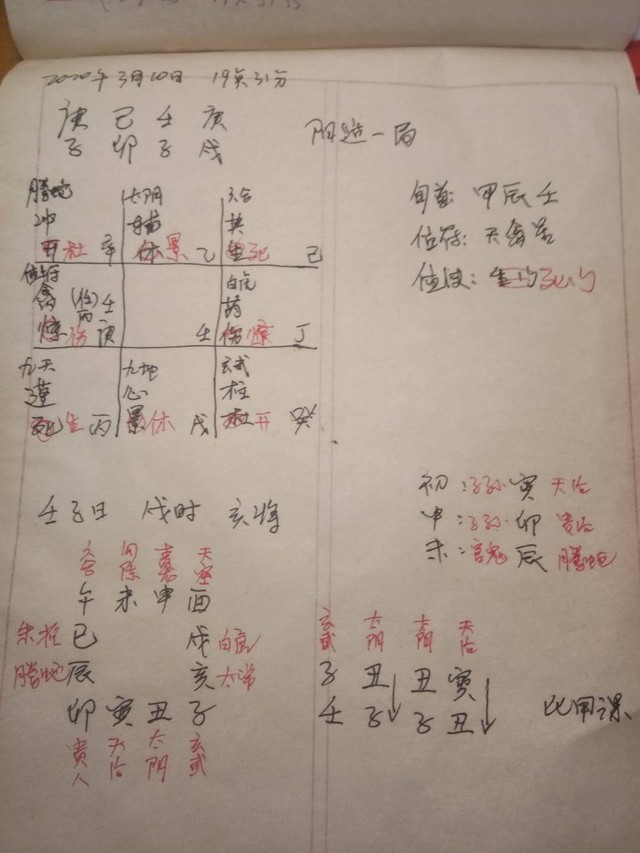 2020年3月10日 19点31分
庚 己 壬 庚
子 卯 子 戌
阳遁一局
旬首: 甲辰壬
值符: 天禽
值使: 死门
腾蛇 太阴 六合
冲 辅 英
杜 辛 休景 乙 死 己
值符 白虎
禽 壬
惊伤 庚 壬 伤惊 丁
九天 九地 玄武
蓬 心 柱
死生 丙 景休 戊 杜开 癸
初: 子孙 寅 天后
中: 子孙 卯 贵人
末: 官鬼 辰 腾蛇
壬子日 戌时 亥将
六合 勾陈 青龙 天空
午 未 申 酉
朱雀 巳 戌 白虎
腾蛇 辰 亥 太常
卯 寅 丑 子
贵人 天后 太阴 玄武
玄武 太阴 太阴 天后
子 丑 丑 寅
壬 子 子 丑
比用课